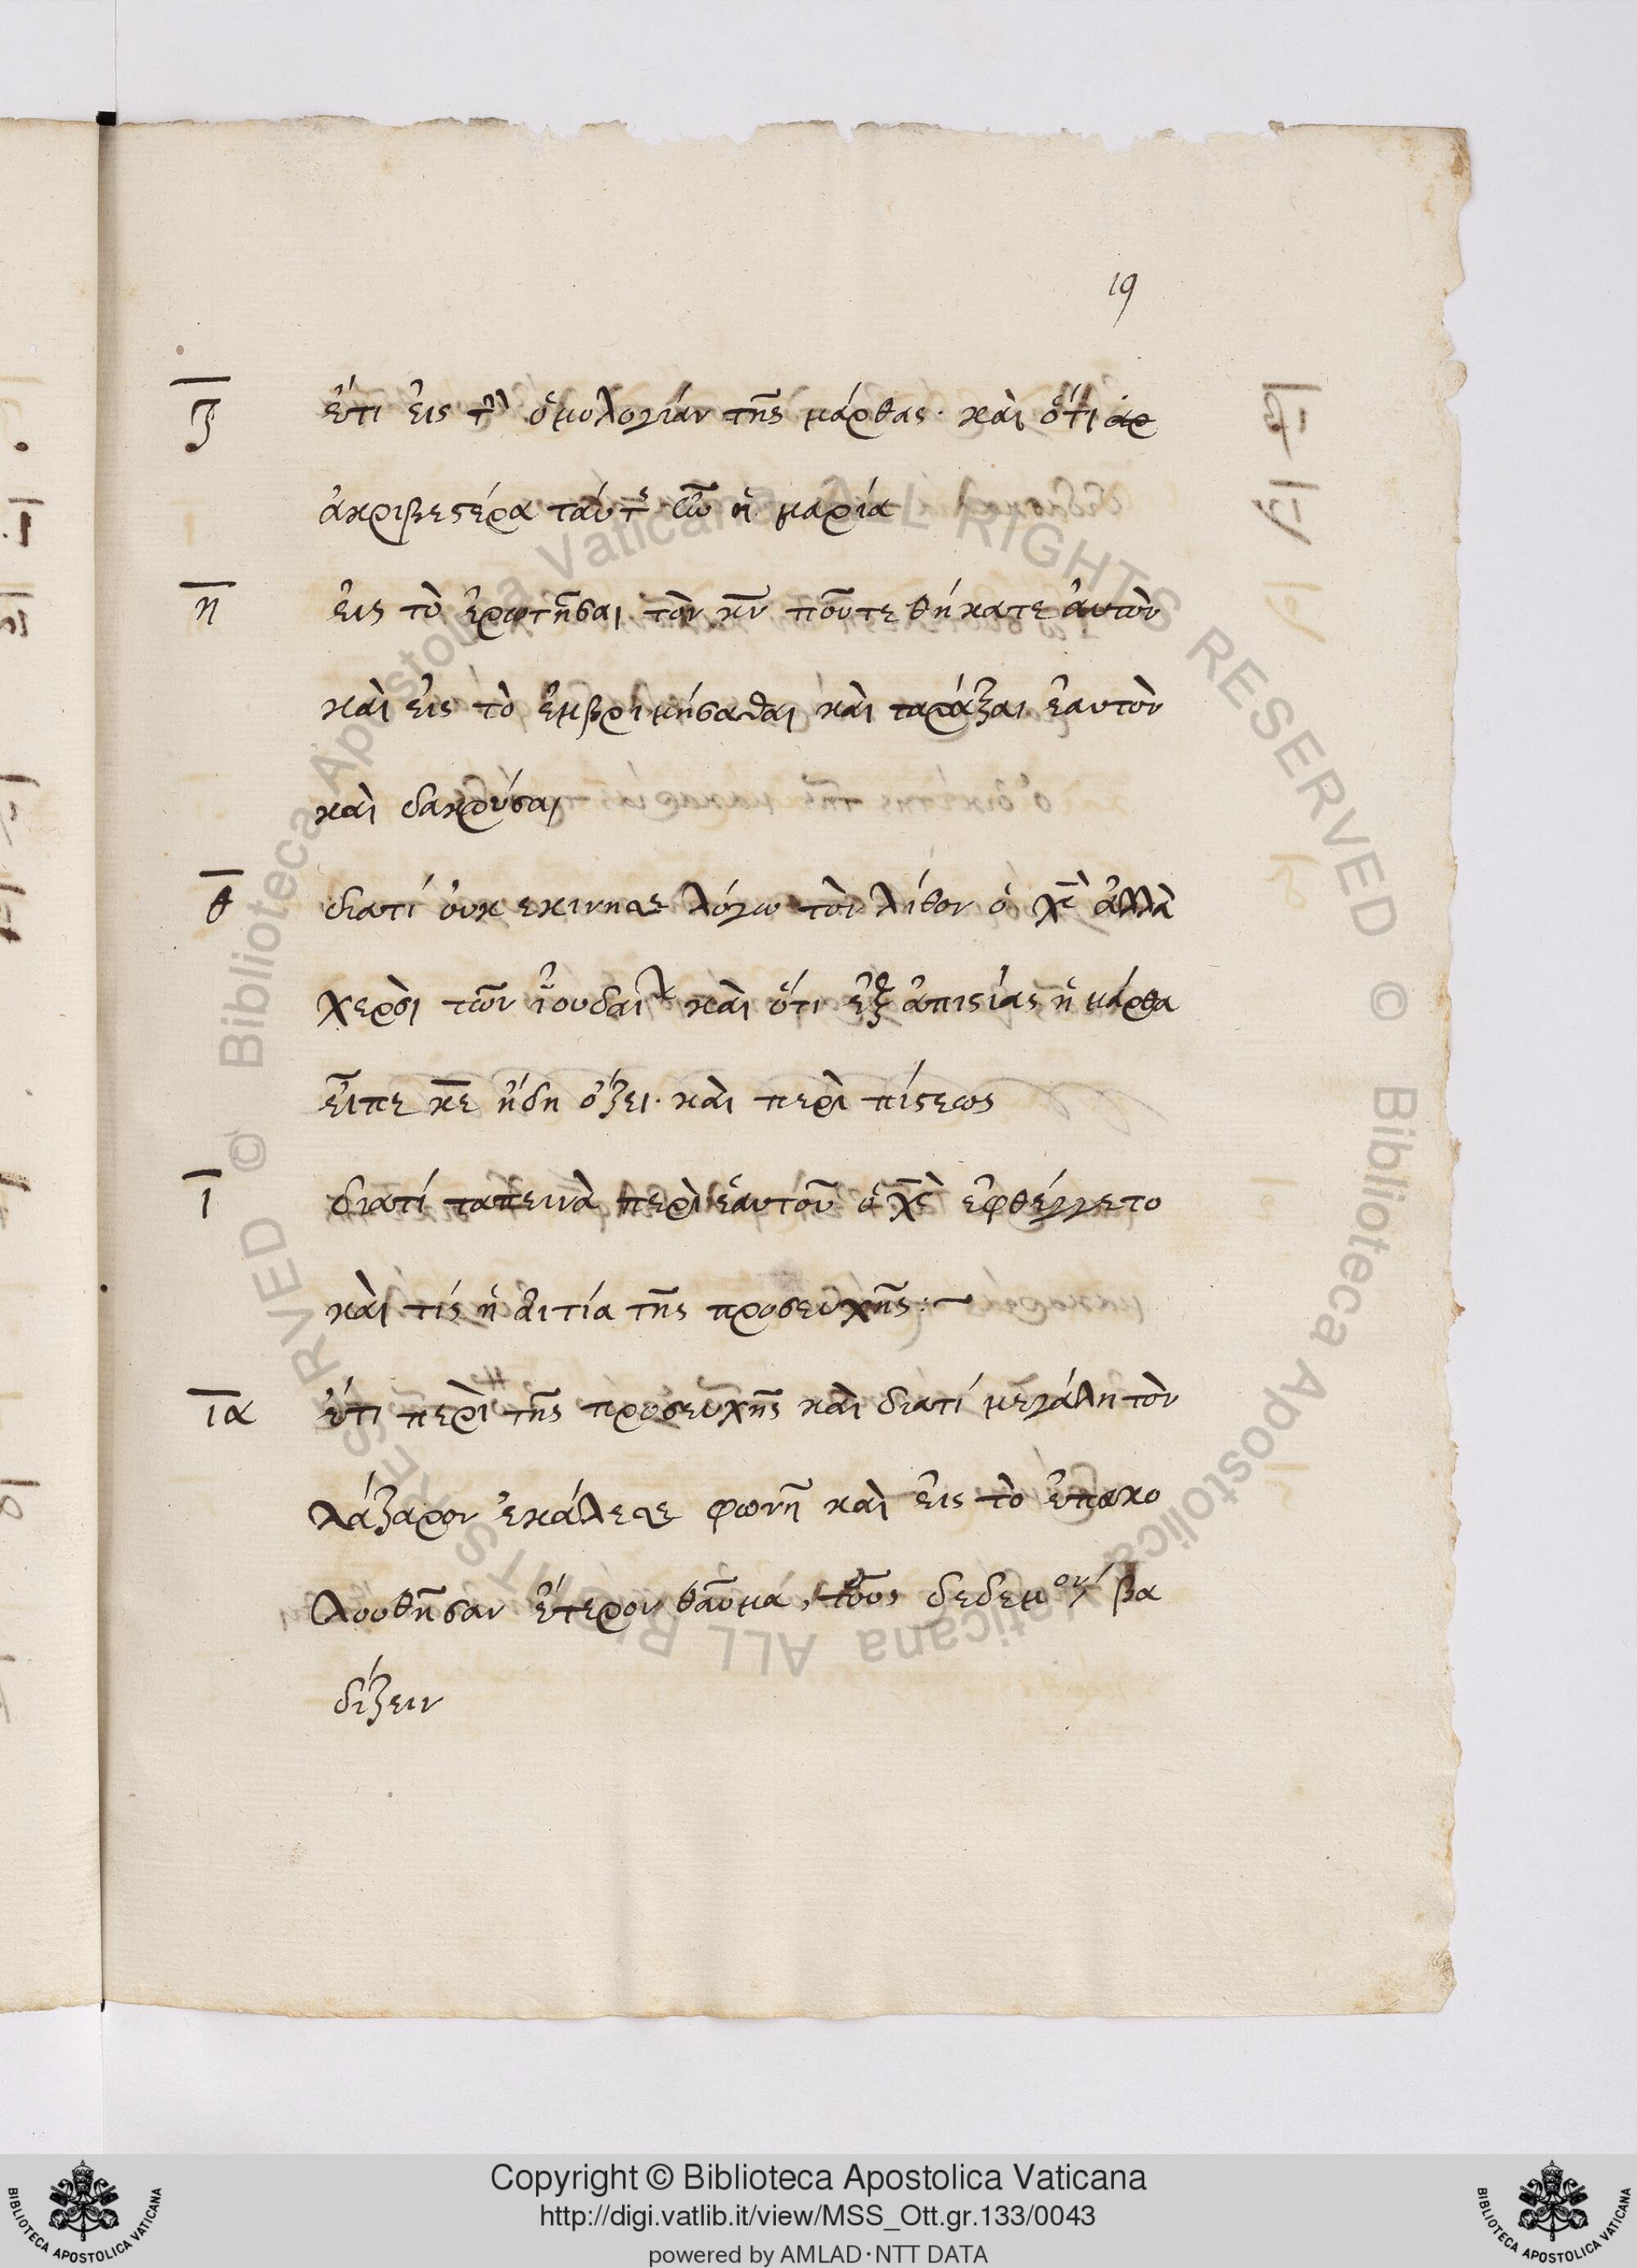 19
ζ ἔτι εἰς τὴν ὁμολογίαν τῆς μάρθας· καὶ ὅτι ἀρ
ἀκριβεστέρα ταύτης ἦν ἡ μαρία
η εἰς τὸ ἐρωτῆσαι τὸν κν ποῦ τεθήκατε ἀυτὸν
καὶ εἰς τὸ ἐμβριμήσασθαι καὶ ταράξαι ἑαυτὸν
καὶ δακρύσαι
θ διατί ὀυκ εκινησε λόγω τὸν λίθον ὁ χς ἀλλὰ
χερσὶ τῶν ϊουδαίων καὶ ὅτι ἐξ ἀπιστίας ἡ μάρθα
εἶπε κε ἤδη ὄζει· καὶ περὶ πίστεως
ι διατί ταπεινὰ περὶ ἑαυτοῦ ὁ χς ἐφθέγγετο
καὶ τίς ἡ ἀιτία τῆς προσευχῆς:~
ια ἔτι περὶ τῆς προσευχῆς καὶ διατί μεγάλη τὸν
λάζαρον ἐκάλεσε φωνῆ καὶ εἰς τὸ ἐπακο
λουθῆσαν ἕτερον θαῦμα, τοῦ δεδεμένον βα
δίζειν
Copyright © Biblioteca Apostolica Vaticana
http://digi.vatlib.it/view/MSS_Ott.gr.133/0043
powered by AMLAD·NTT DATA
BIBLIOTECA APOSTOLICA VATICANA
BIBLIOTECA APOSTOLICA VATICANA
© Biblioteca Apostolica Vaticana ALL RIGHTS RESERVED © Biblioteca Apostolica Vaticana ALL RIGHTS RESERVED